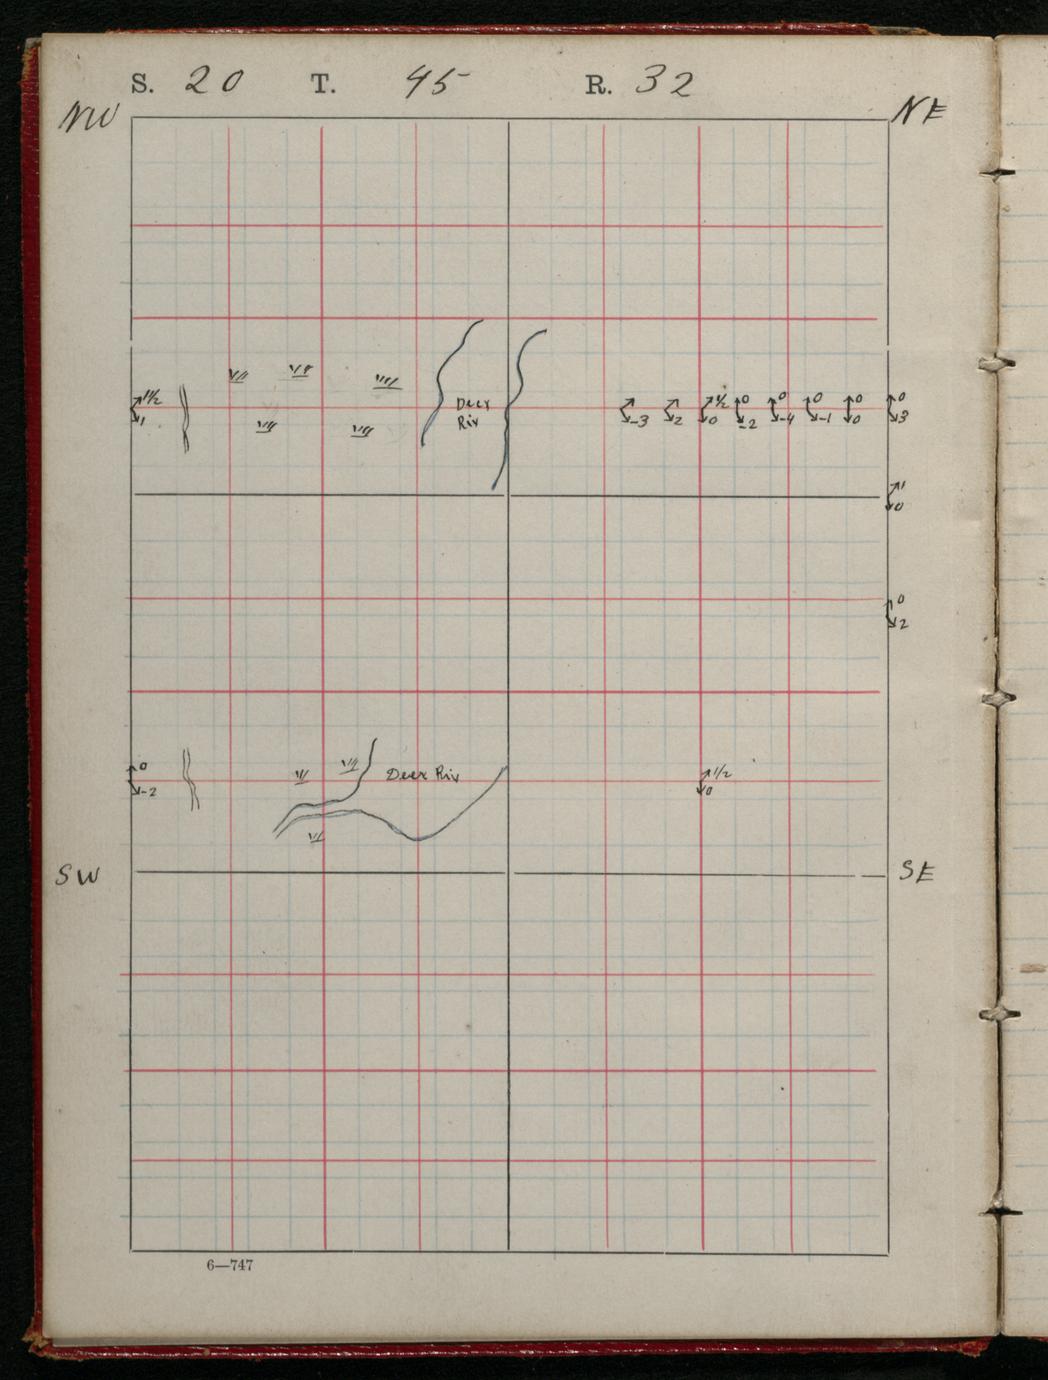 S. 20 T. 45 R. 32
NW NE
1 1/2 0 0 0 0 0 1/2
1 Deer Riv -3 2 0 -2 -4 -1 0 3
1
0
0
2
0 Deer Riv 1/2
-2 0
SW SE
6—747